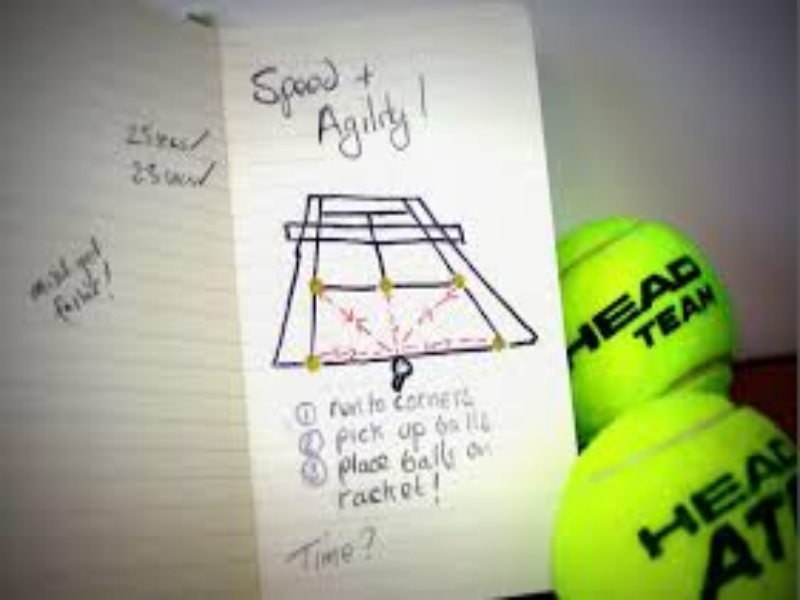 25secs/
23secs/
must get
faster!
Speed +
Agility!
① run to corners
② pick up balls
③ place balls on
racket!
Time?
HEAD
TEAM
HEAD